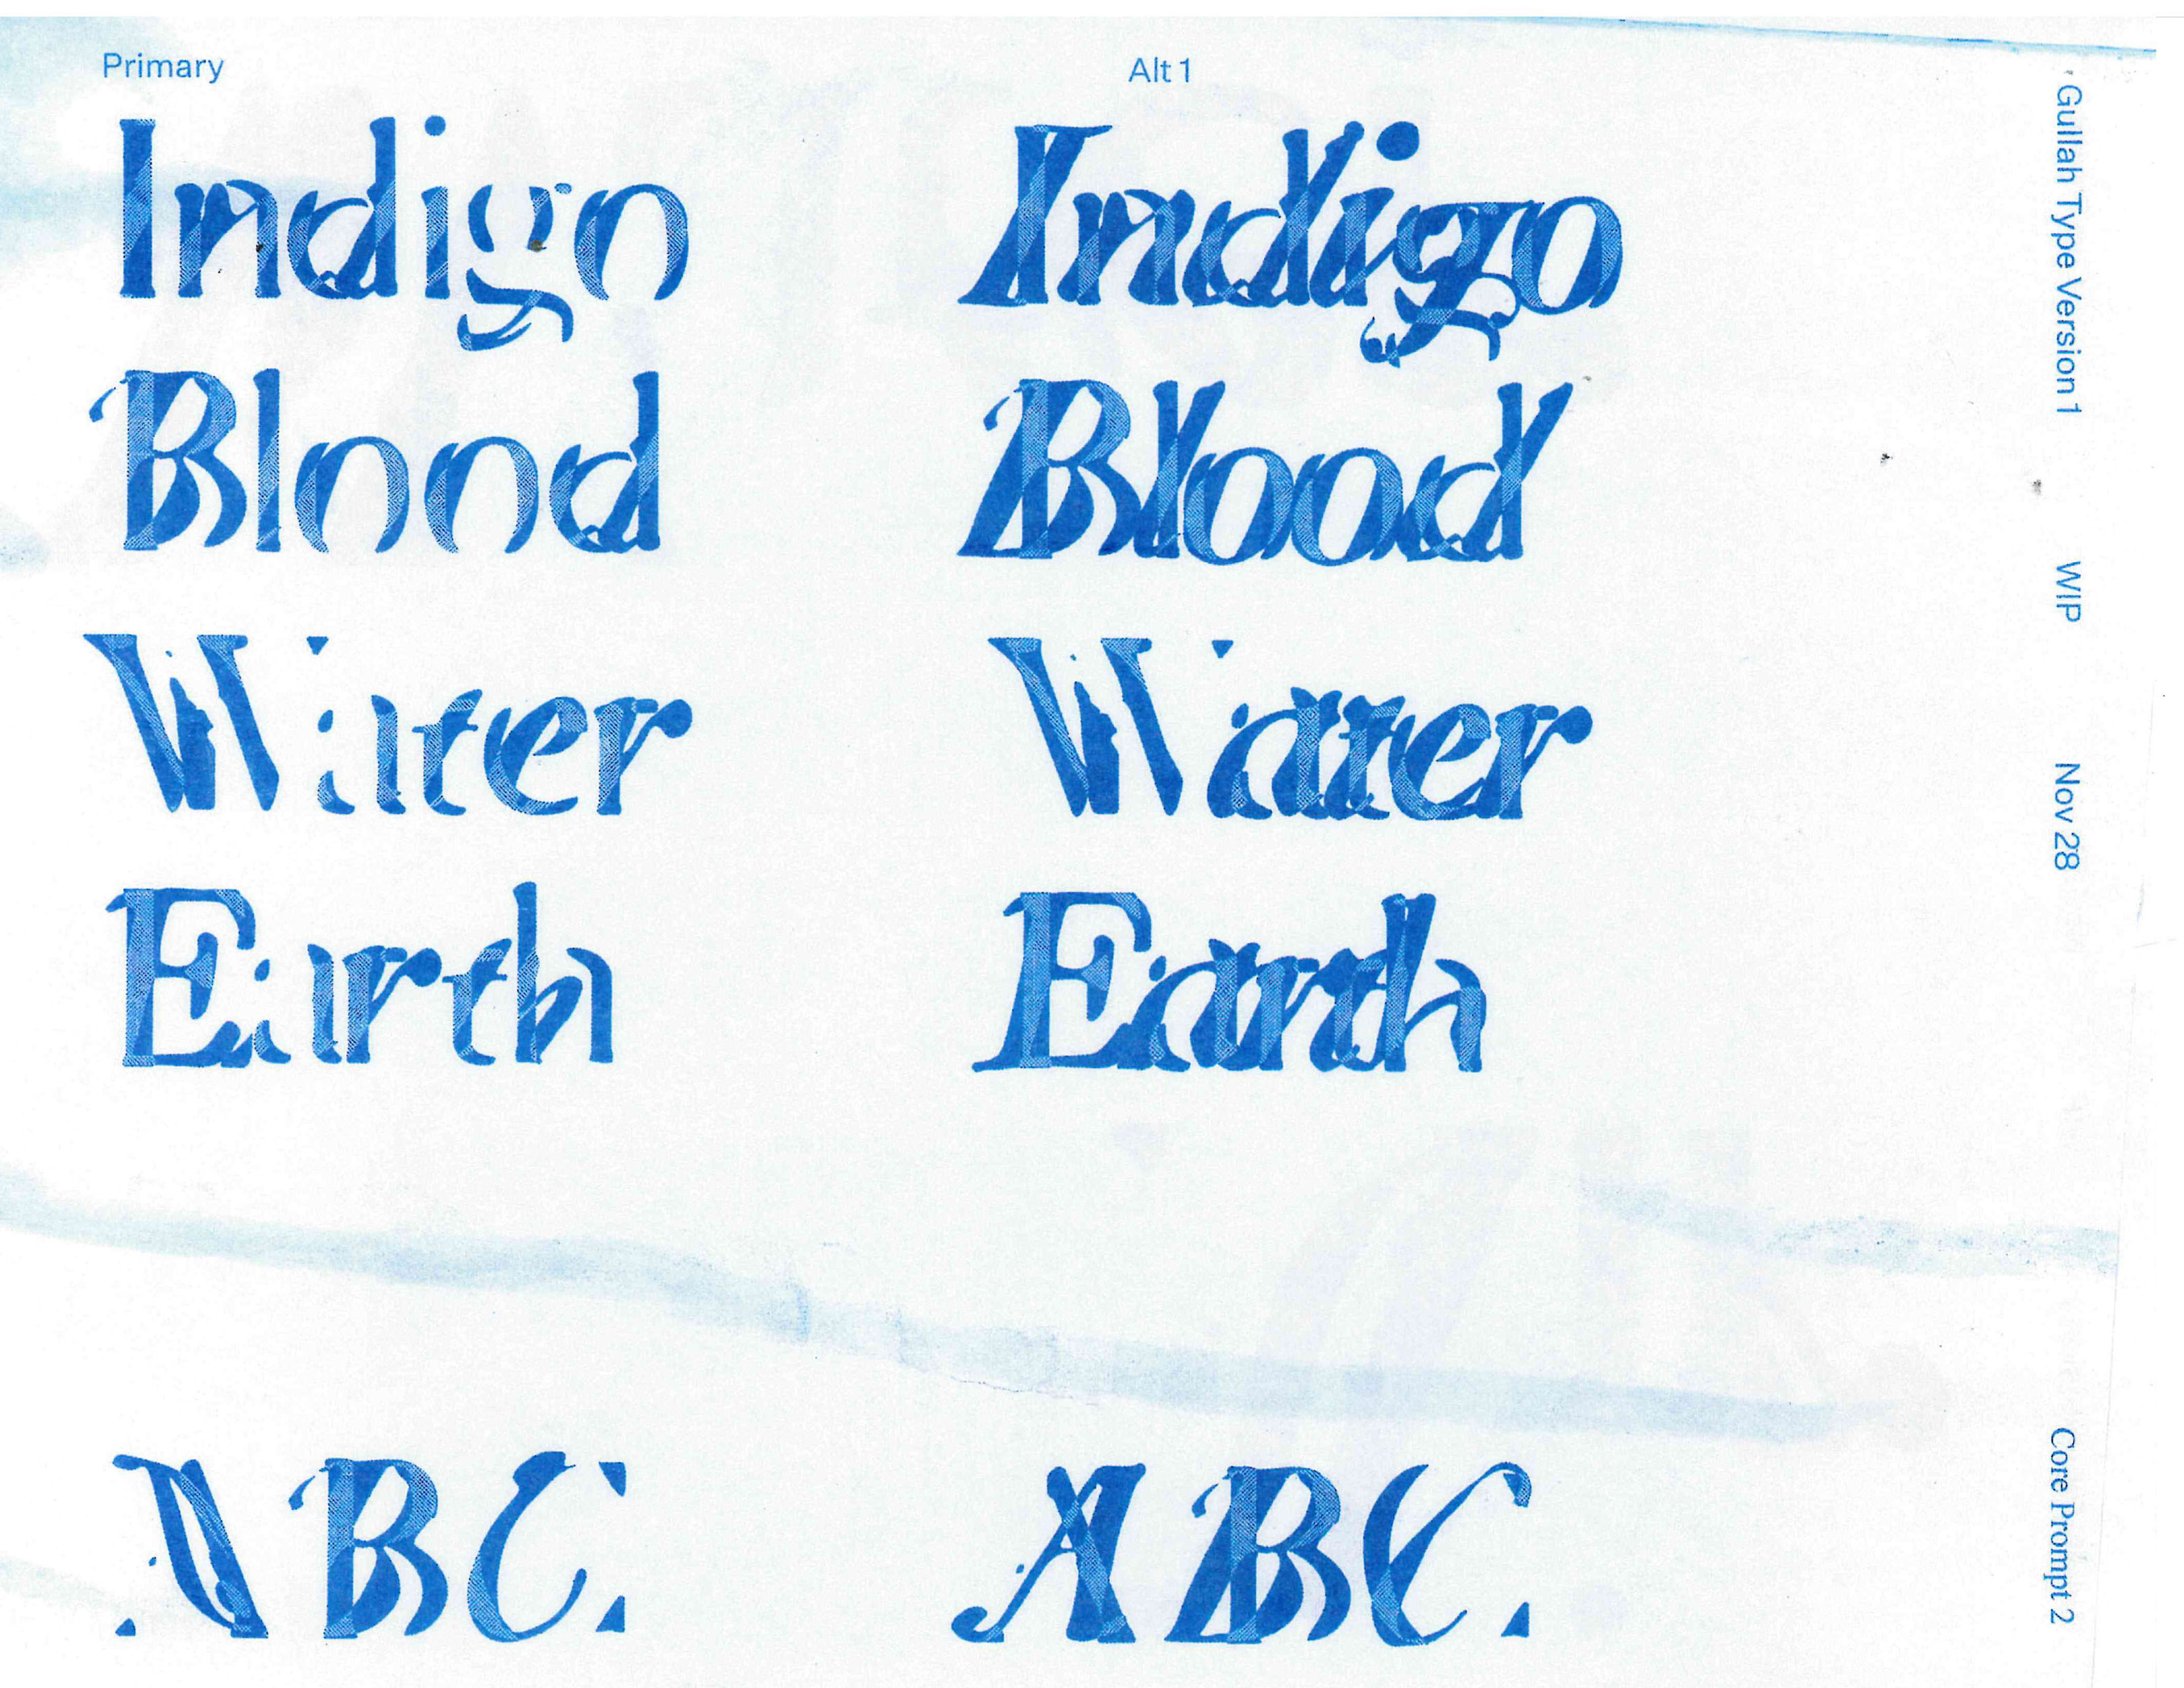 Primary
Alt 1
Indigo
Indigo
Blood
Blood
Water
Water
Earth
Earth
A B C
A B C
Gullah Type Version 1
WIP
Nov 28
Core Prompt 2